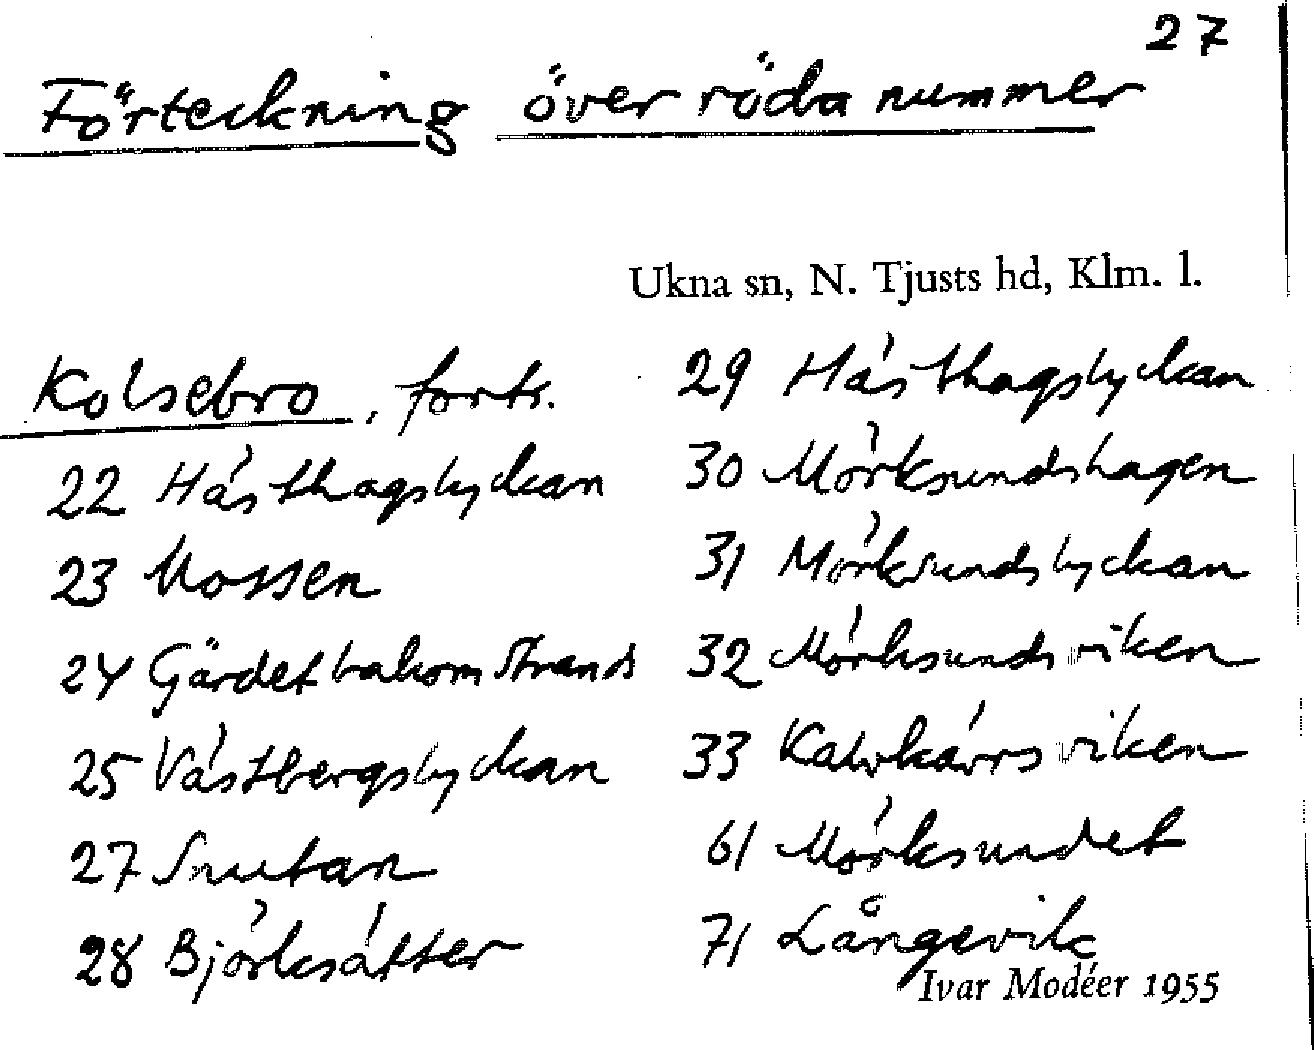 27
Förteckning över röda nummer
Ukna sn, N. Tjusts hd, Klm. l.
Kolsebro, forts.
22 Hästhagslyckan
23 Mossen
24 Gärdet bakom Strands
25 Västbergslyckan
27 Snutan
28 Björksätter
29 Hästhagslyckan
30 Mörksundshagen
31 Mörksundslyckan
32 Mörksundsviken
33 Kalvkärrsviken
61 Mörksundet
71 Långevik
Ivar Modéer 1955